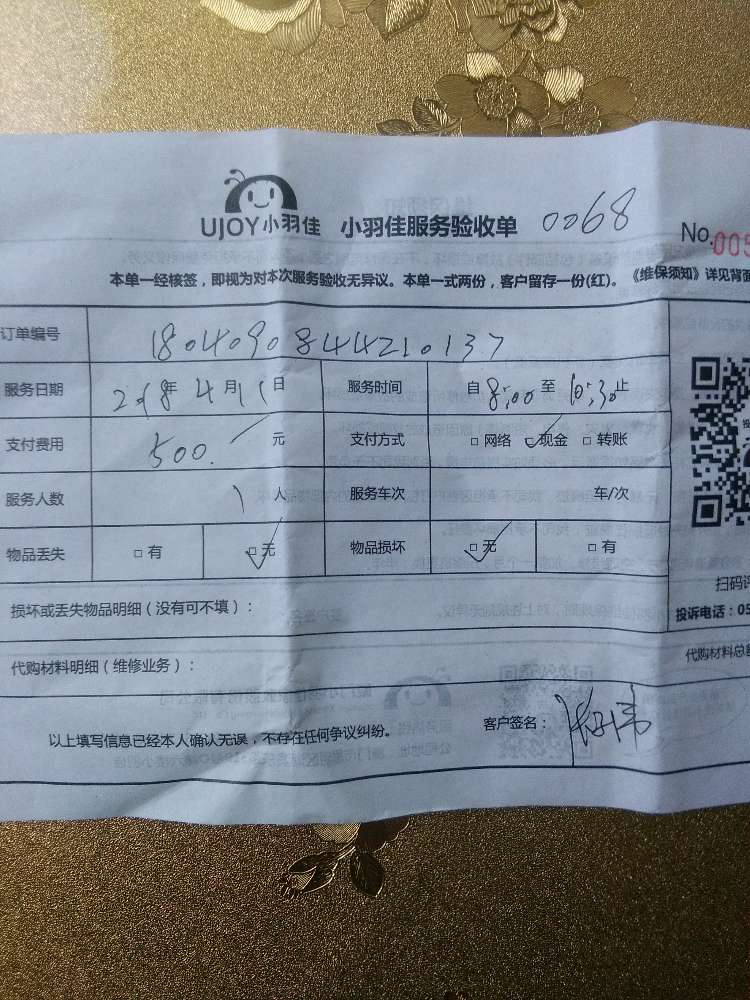 UJOY小羽佳 小羽佳服务验收单 0068 No.009
本单一经核签，即视为对本次服务验收无异议。本单一式两份，客户留存一份(红)。《维保须知》详见背面
订单编号 1804090844210137
服务日期 2018年4月11日 服务时间 自8:00至10:30止
支付费用 500. 元 支付方式 □网络 ☑现金 □转账
服务人数 1人 服务车次 车/次
物品丢失 □有 ☑无 物品损坏 ☑无 □有
扫码评
损坏或丢失物品明细（没有可不填）： 投诉电话：05
代购材料明细（维修业务）： 代购材料总额
以上填写信息已经本人确认无误，不存在任何争议纠纷。 客户签名：